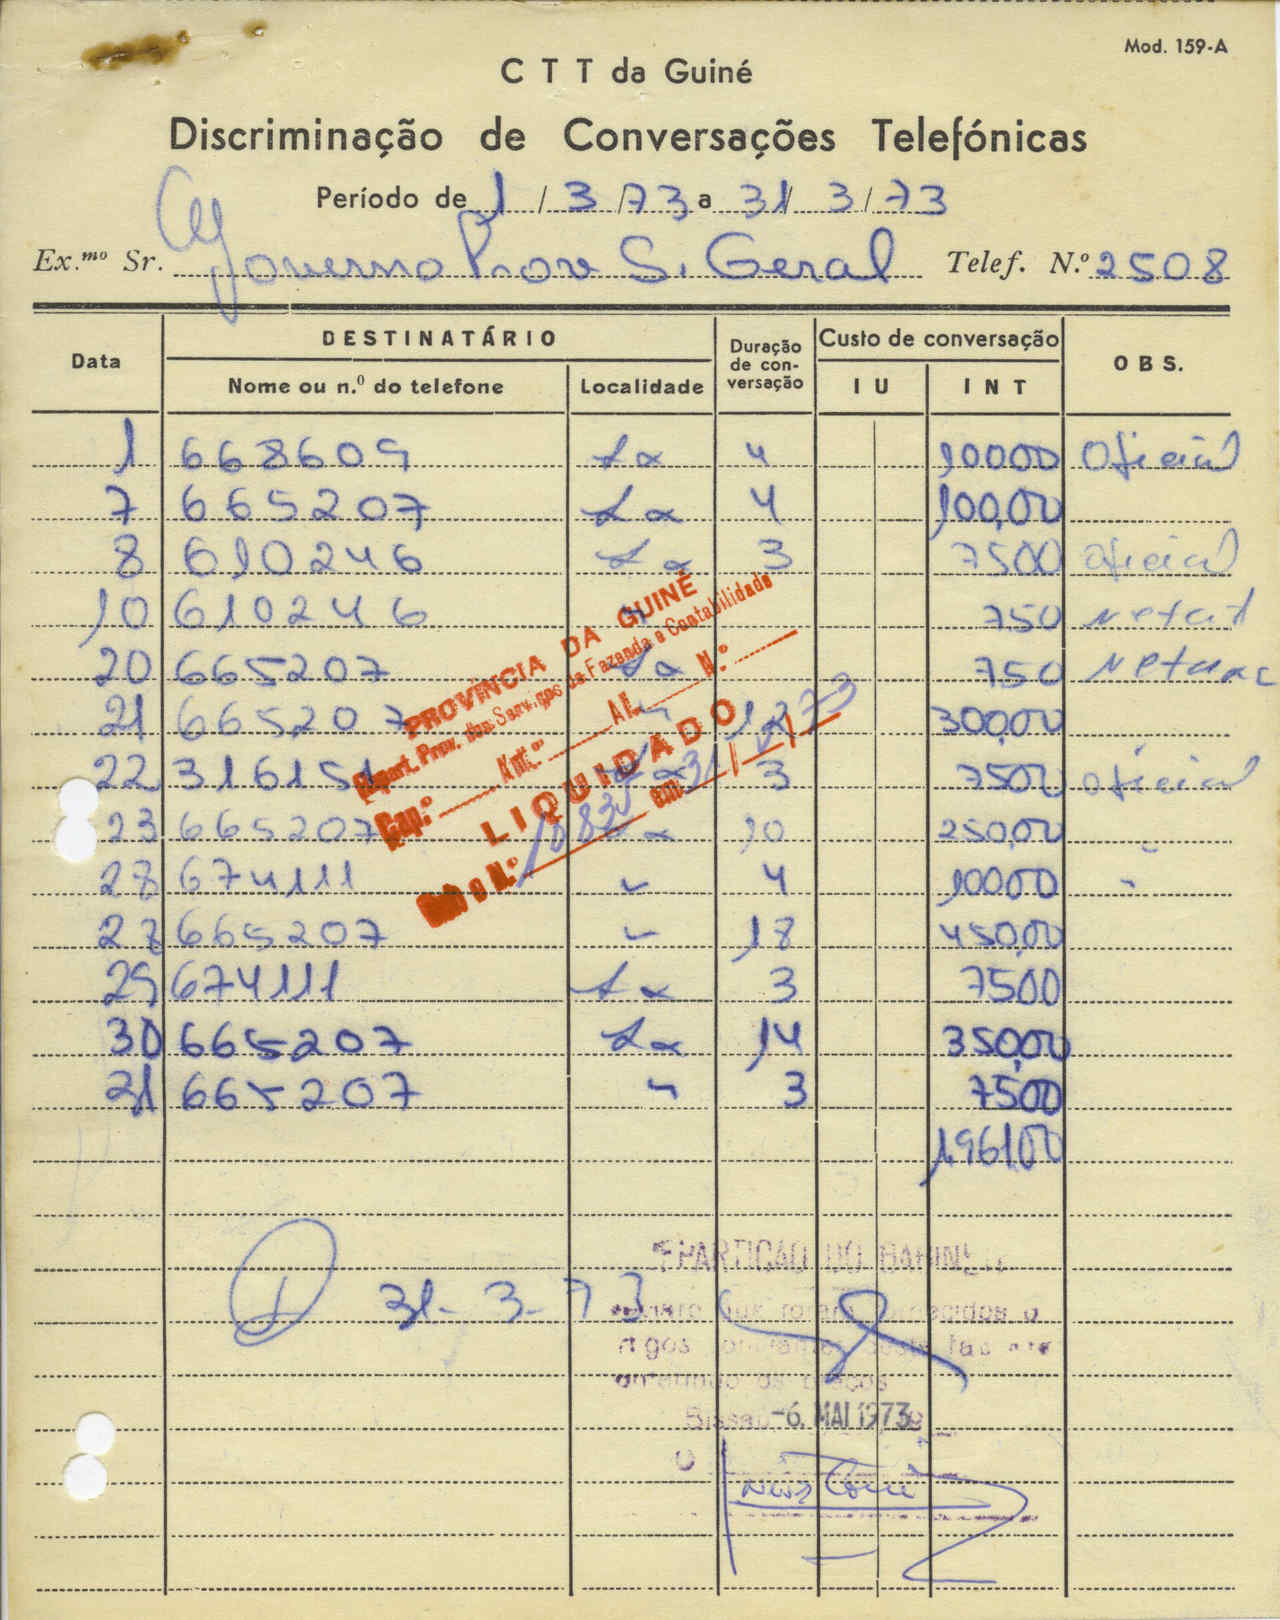 Mod. 159-A
C T T da Guiné
Discriminação de Conversações Telefónicas
Período de 1/3/73 a 31/3/73
Ex.mo Sr. Governo Prov S. Geral Telef. N.º 2508
Data DESTINATÁRIO Duração de conversação Custo de conversação OBS.
Nome ou n.º do telefone Localidade IU INT
1 668609 Lx 4 100,00 Oficial
7 665207 Lx 4 100,00
8 610246 Lx 3 75,00 Oficial
10 610246 7,50
20 665207 Lx 7,50
21 665207 12 300,00
22 316151 Lx 3 75,00 Oficial
23 665207 Lx 10 250,00
28 674111 " 4 100,00 "
28 665207 " 18 450,00
29 674111 Lx 3 75,00
30 665207 Lx 14 350,00
31 665207 " 3 75,00
1.961,00
PROVÍNCIA DA GUINÉ
Repart. Prov. dos Serviços de Fazenda e Contabilidade
Cap.º Art.º Al. N.º
LIQUIDADO
Sob o N.º em 31/5/73
31-3-73
Bissau -6. MAI 1973
O